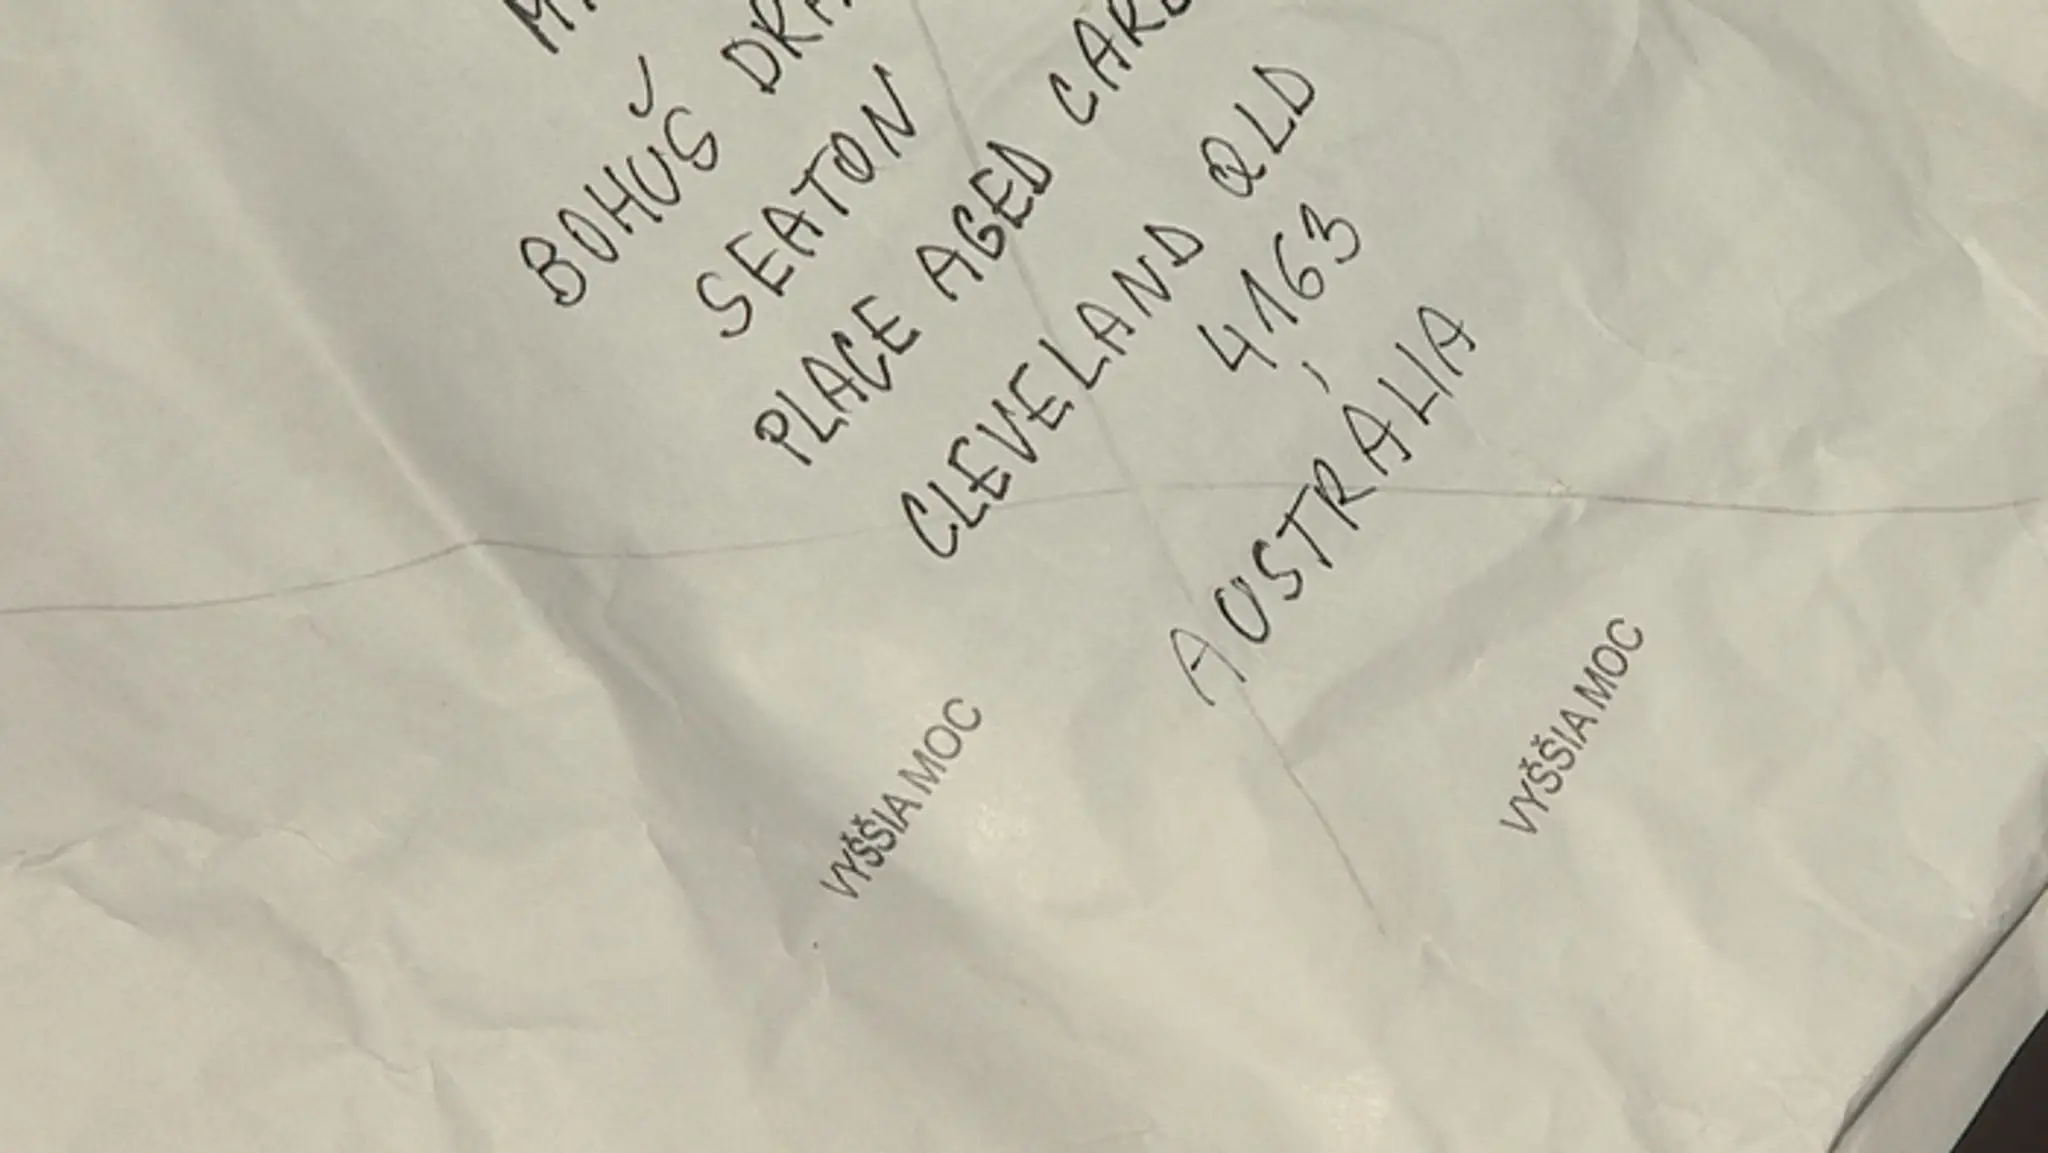 BOHUŠ
SEATON
PLACE AGED CARE
CLEVELAND QLD
4163
AUSTRÁLIA
VYŠŠIA MOC
VYŠŠIA MOC